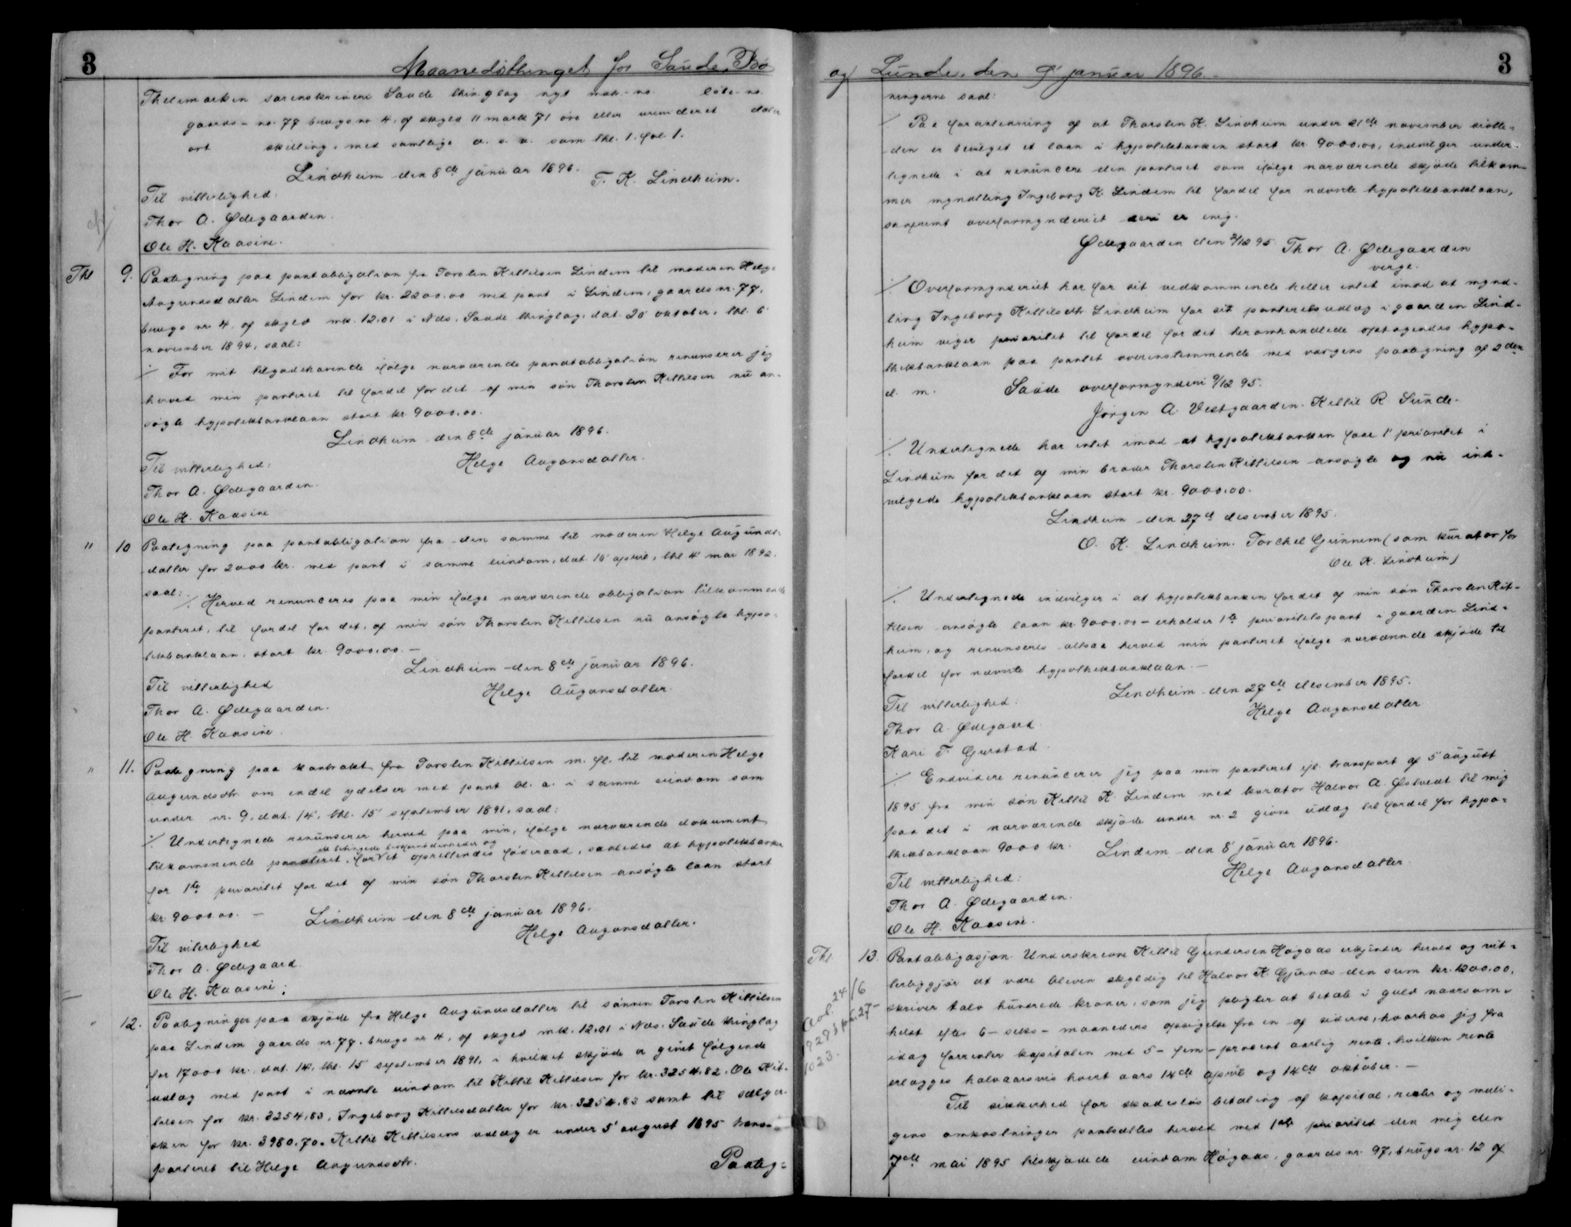 3
Maanedsthinget for Saude, Bø
Thelemarkens sorenskriveri Saude thinglag nyt matr. no. løbe-no.
gaards-no. 77 brugs no 4, af skyld 11 mark 71 øre eller urevideret daler
ort skilling, med samtlige a. s. v. som lit. 1. fol 1.
Lindheim den 8de januar 1896.
T. K. Lindheim.
Til vitterlighed:
Thor A. Ødegaarden.
Ole H. Kaasine.
Thl 9. Paategning paa pantobligation fra Torsten Kittilsen Lindem til moderen Helge
Augundsdatter Lindem for kr. 2200.00 med pant i Lindem, gaards nr. 77,
brugs nr 4, af skyld mk. 12.01 i Nds. Saude thinglag, dat. 20 oktober, thl. 6
november 1894, saal:
⁒ For mit tilgodehavende ifølge nærværende pandtobligation renuncerer jeg
herved min panteret til fordel for det af min søn Thorsten Kittilsen nu an-
søgte hypothekbanklaan stort kr 9000.00.
Lindheim den 8de januar 1896.
Til vitterlighed:
Helge Augonsdatter.
Thor A. Ødegaarden.
Ole H. Kaasine
" 10 Paategning paa pantobligation fra den samme til moderen Helge Augunds-
datter for 2000 kr. med pant i samme eiendom, dat 14 april, thl 4 mai 1892.
saal:
⁒ Herved renunceres paa min ifølge nærværende obligation tilkommende
panteret, til fordel for det, af min søn Thorsten Kittilsen nu ansøgte hypo-
thekbanklaan, stort kr. 9000.00. —
Lindheim den 8de januar 1896.
Til vitterlighed
Helge Augonsdatter
Thor A. Ødegaarden.
Ole H. Kaasine.
" 11. Paategning paa kontrakt fra Torsten Kittilsen m. fl. til moderen Helge
Augundsdtr. om endel ydelser med pant bl. a. i samme eiendom som
under nr. 9, dat. 14, thl. 15 september 1891, saal:
⁒ Undertegnede renuncerer herved paa min, ifølge nærværende dokument
tilkommende panteret, for de betingede brugsrettigheder og det opstillendes føderaad, saaledes at hypothekbanken
for 1ste prioritet for det af min søn Thorsten Kittilsen ansøgte laan stort
kr 9000.00. —
Lindheim den 8de januar 1896.
Til viterlighed
Helge Augonsdatter.
Thor A. Ødegaard.
Ole H. Kaasine.
" 12. Paategninger paa skjøde fra Helge Augundsdatter til sønnen Torsten Kittilsen
paa Lindem gaards nr 77, brugs nr 4, af skyld mk. 12.01 i Nds. Saude thinglag
for 17000 kr., dat. 14, thl. 15 september 1891, i hvilket skjøde er givet følgende
udlæg med pant i nævnte eiendom til Kittil Kittilsen for kr. 3254.82, Ole Kit-
tilsen for kr. 3254.83, Ingeborg Kittilsdatter for kr. 3254.83 samt til sælger-
sken for kr. 3980.70. Kittil Kittilsens udlæg er under 5 august 1895 trans-
porteret til Helge Augundsdtr.
Paateg-
og Lunde, den 9' januar 1896.
3
ningerne saal:
⁒ Paa foranledning af at Thorsten K. Lindheim under 21de november sidstle-
den er bevilget et laan i hypothekbanken stort kr. 9000.00, indvilger under-
tegnede i at renuncere den panteret som ifølge nærværende skjøde tilkom-
mer myndling Ingeborg K. Lindem til fordel for nævnte hypothekbanklaan,
saafremt overformynderiet deri er enig.
Ødegaarden den 2/12 95 Thor A. Ødegaarden
verge.
⁒ Overformynderiet har for sit vedkommende heller intet imod at mynd-
ling Ingeborg Kittilsdtr. Lindheim for sit panterets udlæg i gaarden Lind-
heim viger prioritet til fordel for det heromhandlede optagendes hypo-
thekbanklaan paa pantet overensstemmende med vergens paategning af 2den
d. m.
Saude overformynderi 9/12 95.
Jørgen A. Vestgaarden. Kittil R Sunde.
⁒ Undertegnede har intet imod at hypothekbanken faar 1' prioritet i
Lindheim for det af min broder Thorsten Kittilsen ansøgte og nu ind-
vilgede hypothekbanklaan stort kr. 9000.00.
Lindheim den 27de desember 1895.
O. K. Lindheim. Torkel Gunnem (som kurator for
Ole K. Lindheim)
⁒ Undertegnede indvilger i at hypothekbanken for det af min søn Thorsten Kit-
tilsen ansøgte laan kr 9000.00 – erholder 1ste prioritets pant i gaarden Lind-
heim, og renunseres altsaa herved min panteret ifølge nærværende skjøde til
fordel for nævnte hypothekbanklaan. —
Lindheim den 27de desember 1895.
Til vitterlighed:
Helge Augonsdatter
Thor A. Ødegaard
Kari T. Gurstad.
⁒ Endvidere renuncerer jeg paa min panteret ifl. transport af 5 august
1895 fra min søn Kittil K. Lindem med kurator Halvor A. Østvedt til mig
paa det i nærværende skjøde under nr 2 givne udlæg til fordel for hypo-
thekbanklaan 9000 kr.
Lindem den 8 januar 1896.
Til vitterlighed:
Helge Augonsdatter
Thor A. Ødegaarden.
Ole H. Kaasine.
Thl 13. Pantobligasjon. Underskrevne Kittil Gundersen Høgaas erkjender herved og vit-
terliggjør at være bleven skyldig til Halvor K. Gjernæs den sum kr. 1200.00,
skriver tolv hundrede kroner, som jeg pligter at betale i guld naarsom-
helst efter 6 – seks – maaneders opsigelse fra en af siderne, hvorhos jeg fra
idag forrenter kapitalen med 5 – fem – prosent aarlig rente, hvilken rente
erlægges halvaarsvis hvert aars 14de april og 14de oktober. —
Til sikkerhed for skadesløs betaling af kapital, renter og muli-
gens omkostninger pantsættes herved med 1ste prioritet den mig den
7de mai 1895 tilskjødede eiendom Høgaas, gaards nr. 97, brugs nr. 12 af